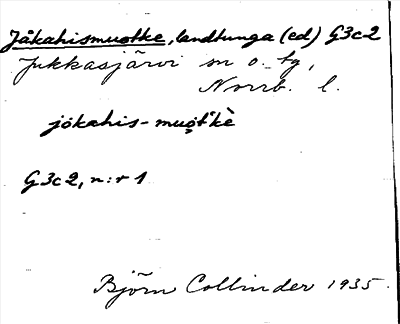 Jåkahismuotke, landtunga (ed) G3c2
Jukkasjärvi sn o. tg,
Norrb. l.
jökahis-muọt'kè
G3c2, n:r 1
Björn Collinder 1935.